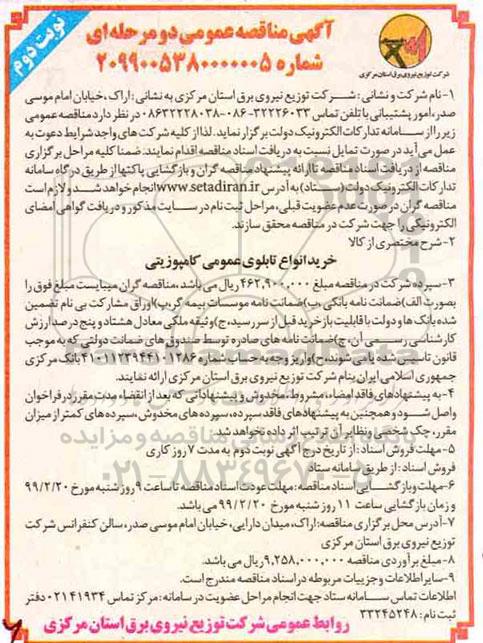 نوبت دوم
آگهی مناقصه عمومی دو مرحله ای
شماره ۲۰۹۹۰۰۵۳۸۰۰۰۰۰۰۵
شرکت توزیع نیروی برق استان مرکزی
۱- نام شرکت و نشانی : شرکت توزیع نیروی برق استان مرکزی به نشانی : اراک، خیابان امام موسی
صدر، امور پشتیبانی با تلفن تماس ۳۲۲۲۶۰۳۳-۰۸۶ ۰۸۶۳۲۲۲۸۰۳۸ در نظر دارد مناقصه عمومی
زیر را از سامانه تدارکات الکترونیک دولت برگزار نماید. لذا از کلیه شرکت های واجد شرایط دعوت به
عمل می آید در صورت تمایل نسبت به دریافت اسناد مناقصه اقدام نمایند: ضمنا کلیه مراحل برگزاری
مناقصه از دریافت اسناد مناقصه تا ارائه پیشنهاد مناقصه گران و بازگشایی پاکتها از طریق درگاه سامانه
تدارکات الکترونیک دولت (ستاد) به آدرس www.setadiran.ir انجام خواهد شد و لازم است
مناقصه گران در صورت عدم عضویت قبلی، مراحل ثبت نام در سایت مذکور و دریافت گواهی امضای
الکترونیکی را جهت شرکت در مناقصه محقق سازند.
۲- شرح مختصری از کالا
خرید انواع تابلوی عمومی کامپوزیتی
۳- سپرده شرکت در مناقصه مبلغ ۴۶۲,۹۰۰,۰۰۰ ریال می باشد، مناقصه گران میبایست مبلغ فوق را
بصورت الف) ضمانت نامه بانکی ،ب) ضمانت نامه موسسات بیمه گر،پ) اوراق مشارکت بی نام تضمین
شده بانک ها و دولت با قابلیت بازخرید قبل از سررسید،ج) وثیقه ملکی معادل هشتاد و پنج درصد ارزش
کارشناسی رسمی آن، چ) ضمانت نامه های صادره توسط صندوق های ضمانت دولتی که به موجب
قانون تاسیس شده یا می شوند، ح) واریز وجه به حساب شماره ۴۱۰۱۱۲۳۹۴۴۱۰۱۲۸۶ بانک مرکزی
جمهوری اسلامی ایران بنام شرکت توزیع نیروی برق استان مرکزی ارائه نمایند.
۴- به پیشنهادهای فاقد امضاء، مشروط، مخدوش و پیشنهاداتی که بعد از انقضاء مدت مقرر در فراخوان
واصل شود و همچنین به پیشنهادهای فاقد سپرده، سپرده های مخدوش، سپرده های کمتر از میزان
مقرر، چک شخصی و نظایر آن ترتیب اثر داده نخواهد شد.
۵- مهلت فروش اسناد : از تاریخ درج آگهی نوبت دوم به مدت ۷ روز کاری
فروش اسناد : از طریق سامانه ستاد
۶- مهلت و بازگشایی اسناد مناقصه: مهلت عودت اسناد مناقصه تا ساعت ۹ روز شنبه مورخ ۹۹/۲/۲۰
و زمان بازگشایی ساعت ۱۱ روز شنبه مورخ ۹۹/۲/۲۰ می باشد.
۷- آدرس محل برگزاری مناقصه: اراک، میدان دارایی، خیابان امام موسی صدر، سالن کنفرانس شرکت
توزیع نیروی برق استان مرکزی
۸- مبلغ برآوردی مناقصه ۹,۲۵۸,۰۰۰,۰۰۰ ریال می باشد.
۹- سایر اطلاعات و جزییات مربوطه در اسناد مناقصه مندرج است.
اطلاعات تماس سامانه ستاد جهت انجام مراحل عضویت در سامانه: مرکز تماس ۰۲۱۴۱۹۳۴ دفتر
ثبت نام : ۳۳۲۴۵۲۴۸
روابط عمومی شرکت توزیع نیروی برق استان مرکزی